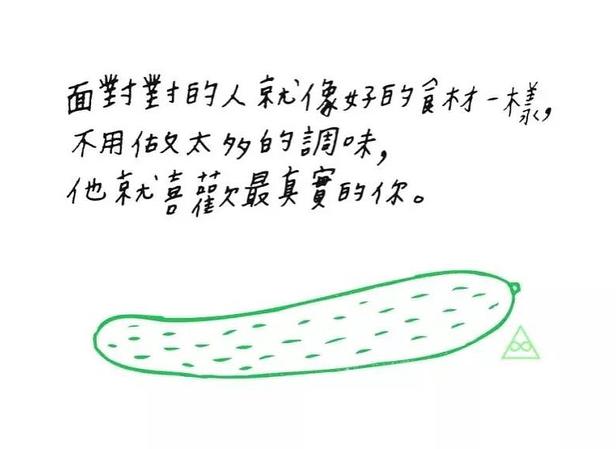 面對對的人就像好的食材一樣,
不用做太多的調味,
他就喜歡最真實的你。